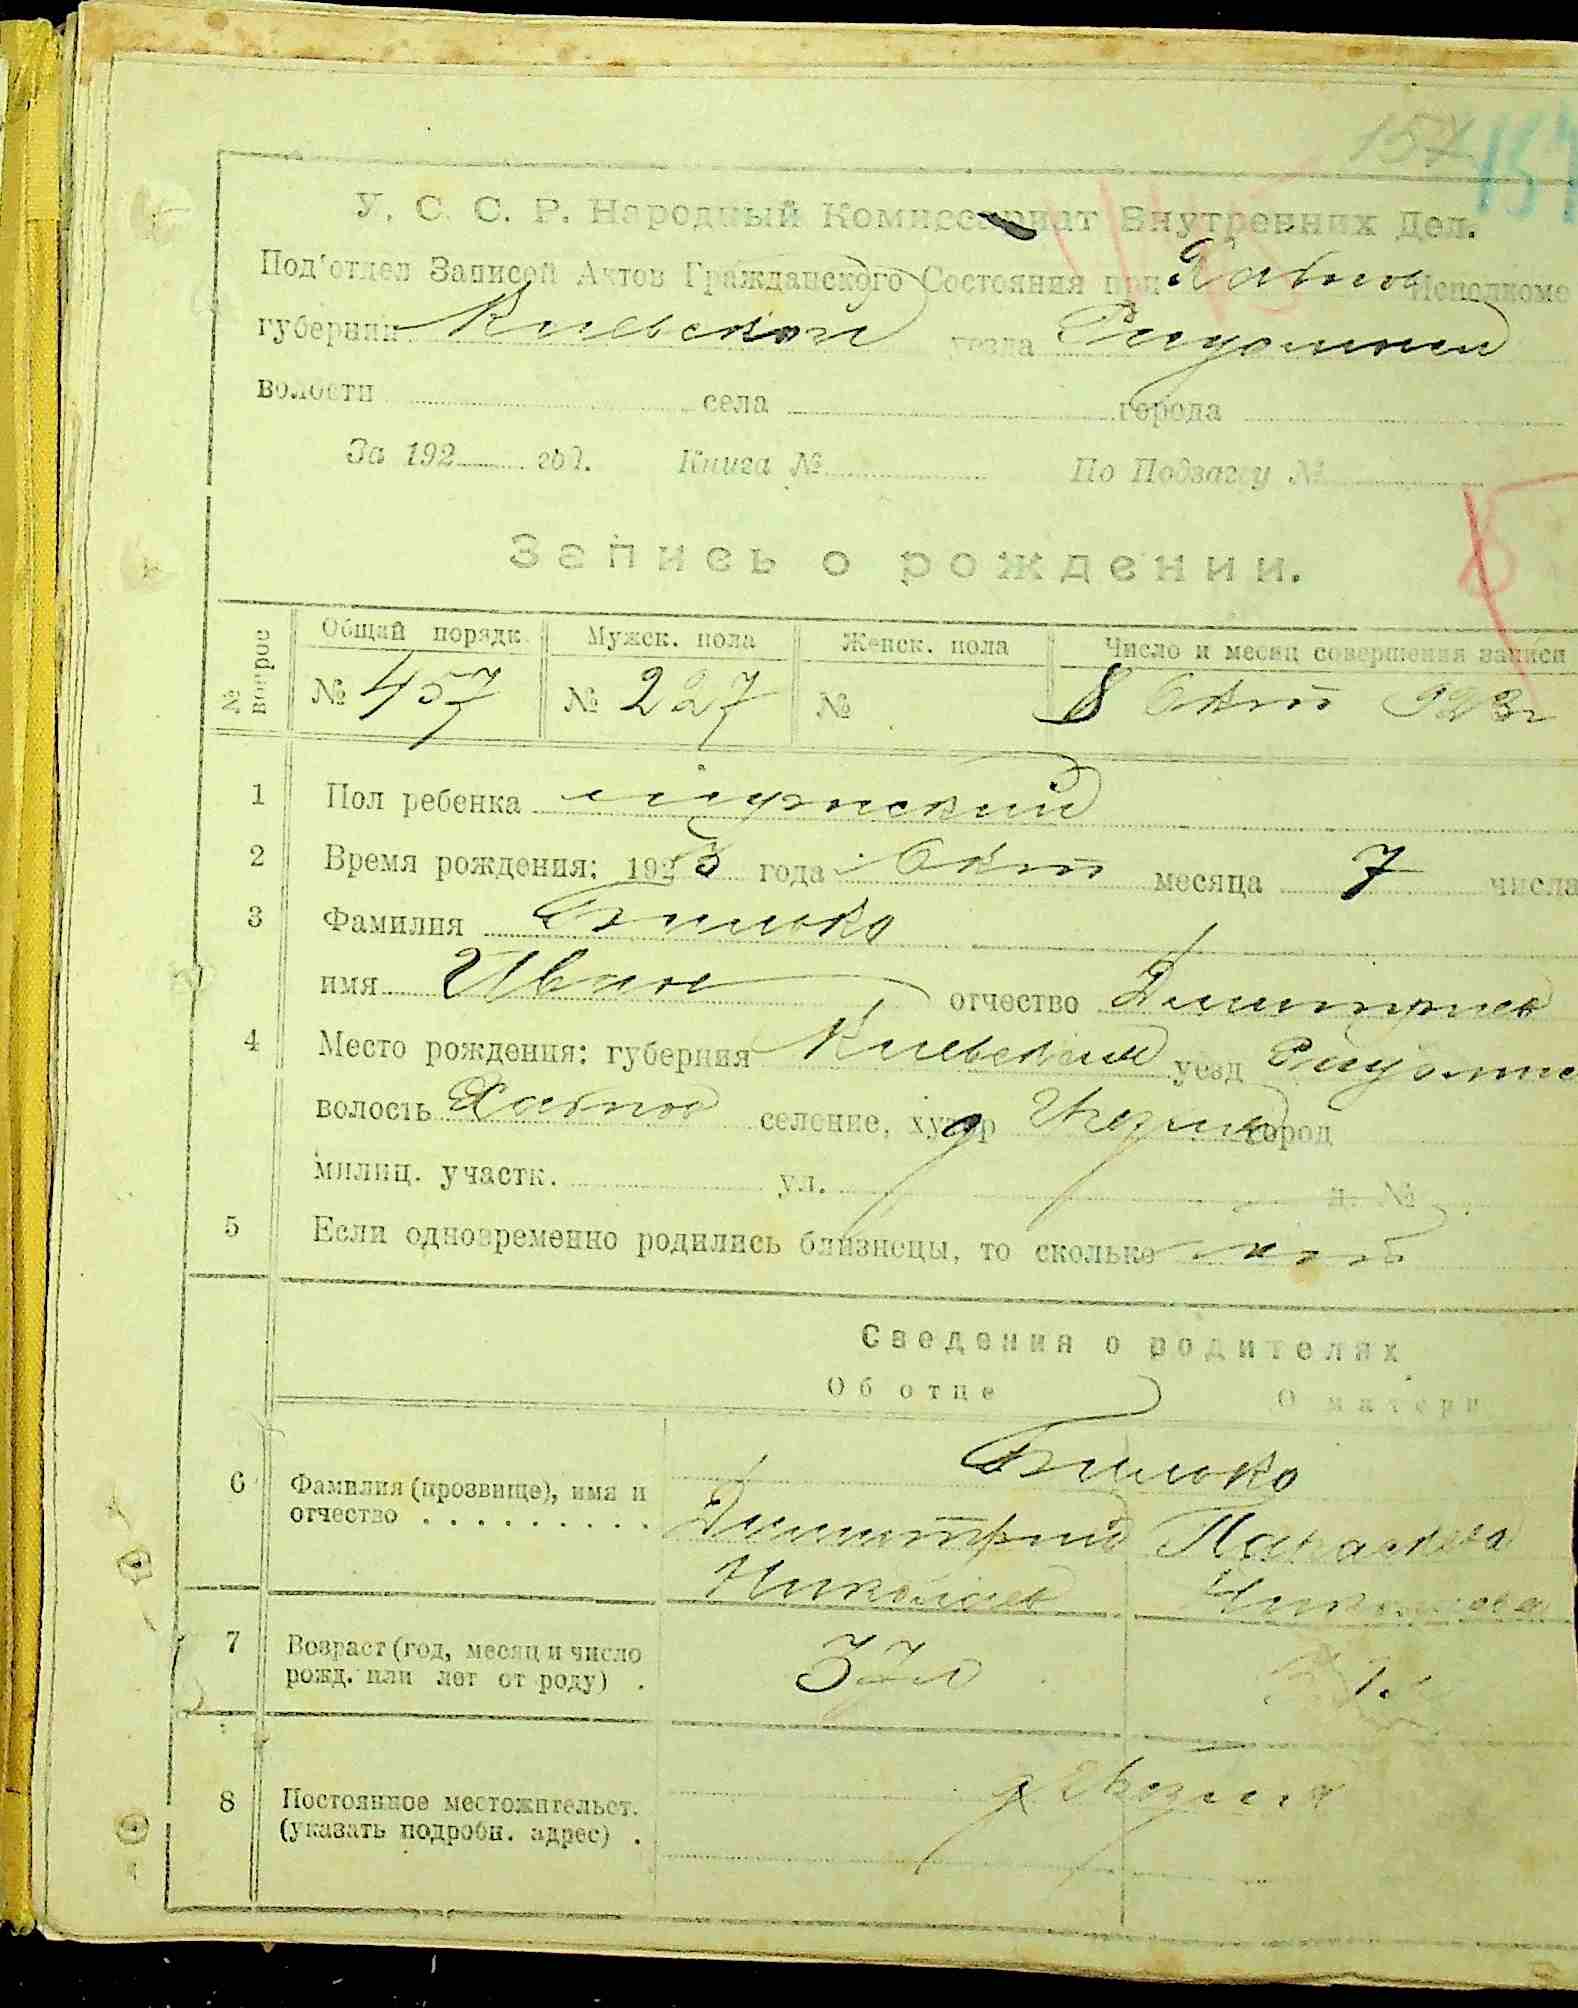 157 157
У. С. С. Р. Народный Комиссариат Внутренних Дел.
Под'отдел Записей Актов Гражданского Состояния при Хабнов Исполкоме
губернии Киевской уезда
волости села города
За 192 год. Книга № По Подзагсу №
Запись о рождении.
№ вопрос Общий порядк. Мужск. пола Женск. пола Число и месяц совершения записи
№ 457 № 227 № 8 Окт 923г
1 Пол ребенка мужский
2 Время рождения: 1923 года Окт месяца 7 числа
3 Фамилия Билько
имя Иван отчество Дмитриев
4 Место рождения: губерния Киевская уезд
волость Хабное селение, хутор д город
милиц. участк. ул. д. №
5 Если одновременно родились близнецы, то сколько
Сведения о родителях
Об отце О матери
Билько
6 Фамилия (прозвище), имя и Димитрий Параскева
отчество . . . . . . . . . Николаев
7 Возраст (год, месяц и число 37л
рожд. или лет от роду) .
8 Постоянное местожительст. д
(указать подробн. адрес) .